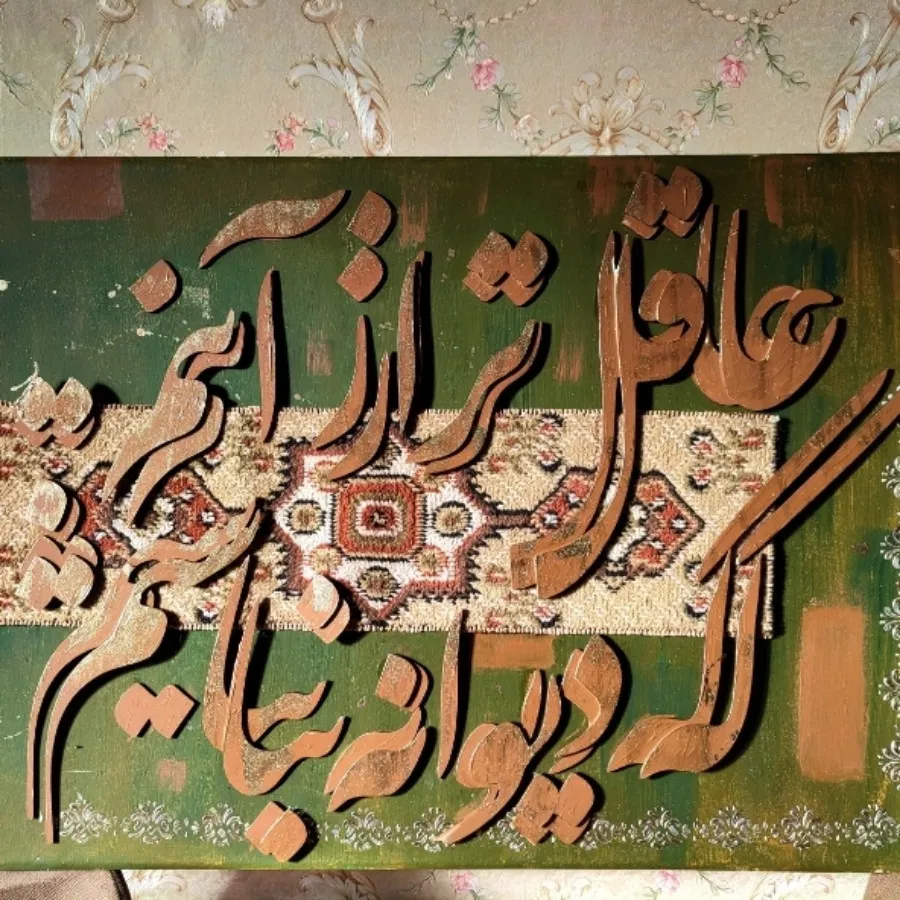 عاقل تر از آنم
که دیوانه نباشم